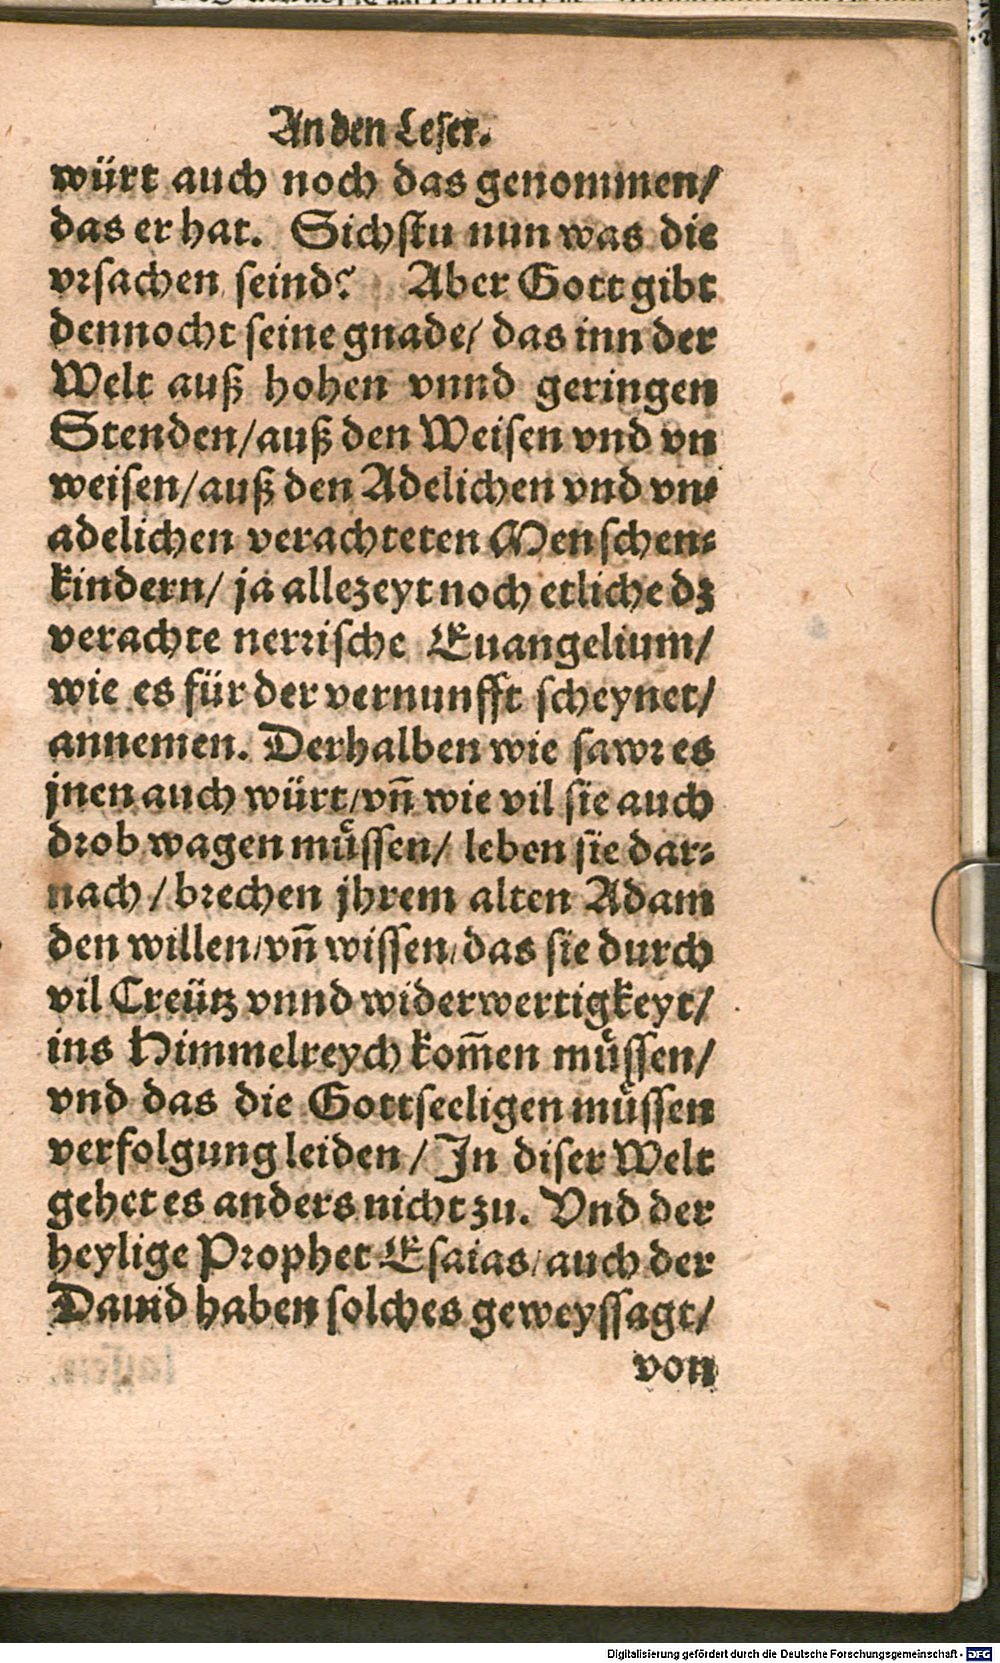 An den Leser.
würt auch noch das genommen/
das er hat. Sichstu nun was die
vrsachen seind? Aber Gott gibt
dennocht seine gnade/ das inn der
Welt auß hohen vnnd geringen
Stenden/auß den Weisen vnd vn
weisen/auß den Adelichen vnd vn⸗
adelichen verachteten Menschen⸗
kindern/ ja allezeyt noch etliche dz
verachte nerrische Euangelium/
wie es für der vernunfft scheynet/
annemen. Derhalben wie sawr es
jnen auch würt/vñ wie vil sie auch
drob wagen müssen/ leben sie dar⸗
nach/ brechen jhrem alten Adam
den willen/vñ wissen/das sie durch
vil Creütz vnnd widerwertigkeyt/
ins Himmelreych kom̃en müssen/
vnd das die Gottseeligen müssen
verfolgung leiden/ In diser Welt
gehet es anders nicht zu. Vnd der
heylige Prophet Esaias/auch der
Dauid haben solches geweyssagt/
von
Digitalisierung gefördert durch die Deutsche Forschungsgemeinschaft - DFG